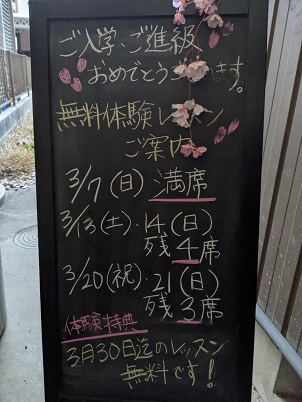 ご入学、ご進級
おめでとうございます。
無料体験レッスン
ご案内
3/7(日)満席
3/13(土)・14(日)
残4席
3/20(祝)・21(日)
残3席
体験特典
3月30日迄のレッスン
無料です!